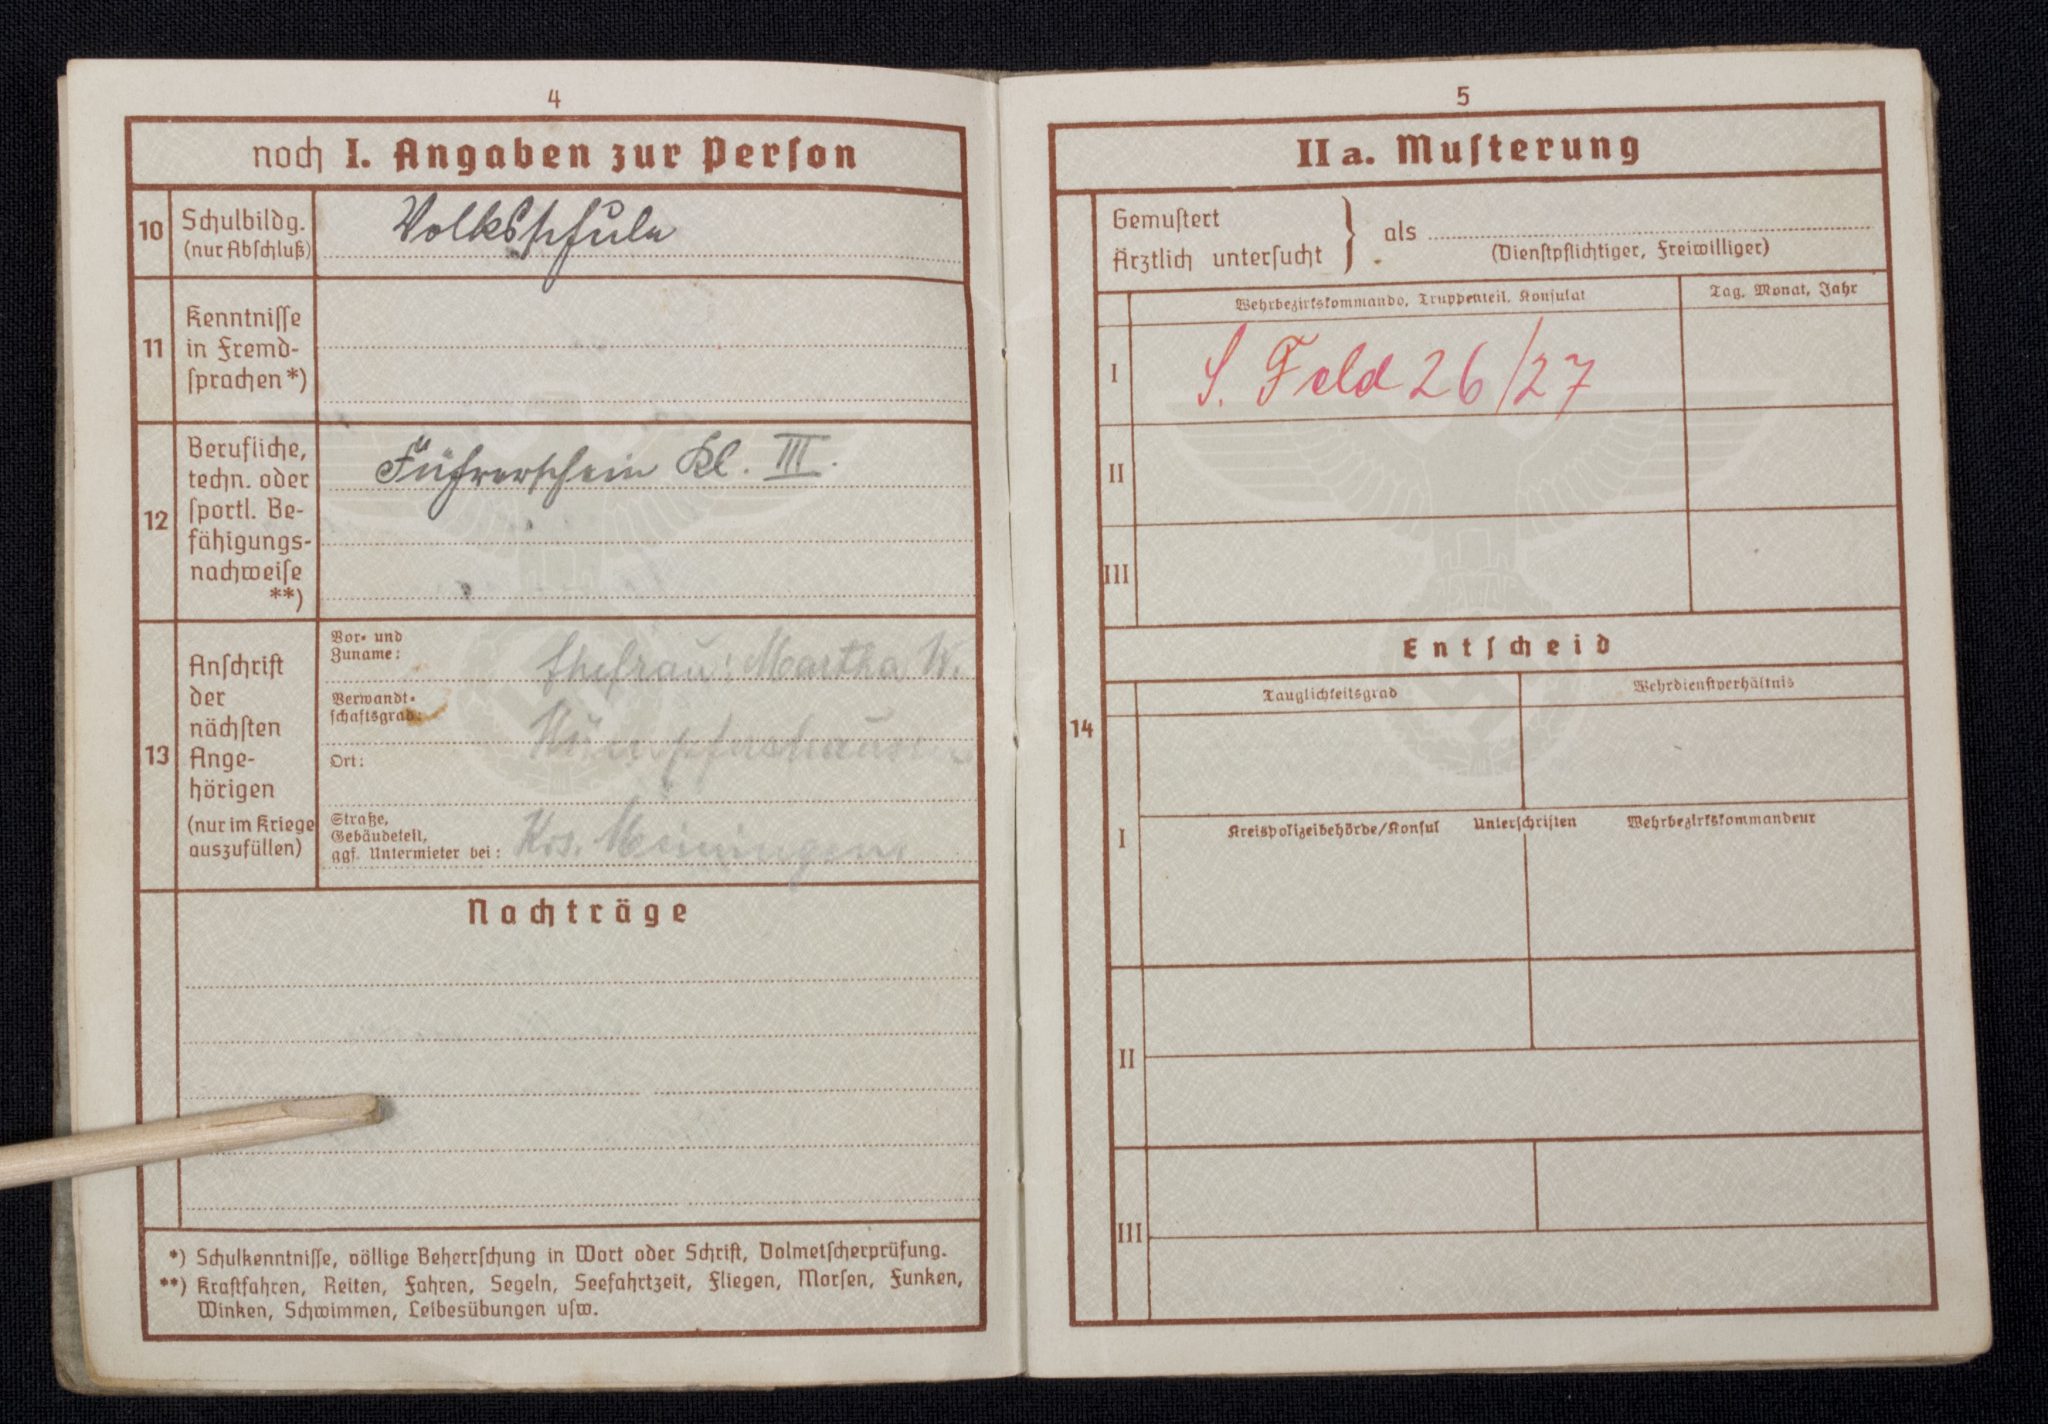 4
noch I. Angaben zur Person
10
Schulbildg.
(nur Abschluß)
Volksschule
11
Kenntnisse
in Fremd-
sprachen*)
12
Berufliche,
techn. oder
sportl. Be-
fähigungs-
nachweise
**)
Führerschein Kl. III.
13
Anschrift
der
nächsten
Ange-
hörigen
(nur im Kriege
auszufüllen)
Vor- und
Zuname:
Ehefrau: Martha W.
Verwandt-
schaftsgrad:
Ort:
Straße,
Gebäudeteil,
ggf. Untermieter bei:
Krs. Meiningen.
Nachträge
*) Schulkenntnisse, völlige Beherrschung in Wort oder Schrift, Dolmetscherprüfung.
**) Kraftfahren, Reiten, Fahren, Segeln, Seefahrtzeit, Fliegen, Morsen, Funken,
Winken, Schwimmen, Leibesübungen usw.
5
II a. Musterung
14
Gemustert
Ärztlich untersucht
} als
(Dienstpflichtiger, Freiwilliger)
Wehrbezirkskommando, Truppenteil, Konsulat
Tag, Monat, Jahr
I
S. Feld 26/27
II
III
Entscheid
Tauglichkeitsgrad
Wehrdienstverhältnis
I
Kreispolizeibehörde/Konsul Unterschriften Wehrbezirkskommandeur
II
III